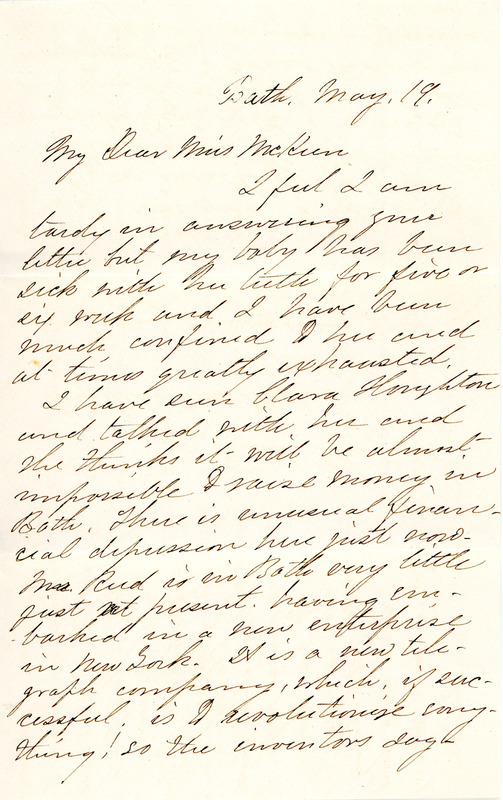 Bath. May. 19.
My Dear Miss McKeen
I feel I am
tardy in answering your
letter but my baby has been
sick with her teeth for five or
six week and I have been
much confined to her and
at times greatly exhausted.
I have seen Clara Houghton
and talked with her and
she thinks it will be almost
impossible to raise money in
Bath. There is unusual finan-
cial depression here just now-
Mr. Reed is in Bath very little
just at present. having em-
barked in a new enterprise
in New York. It is a new tele-
graph company, which, if suc-
cessful. is to revolutionize every-
thing! so the inventors say-